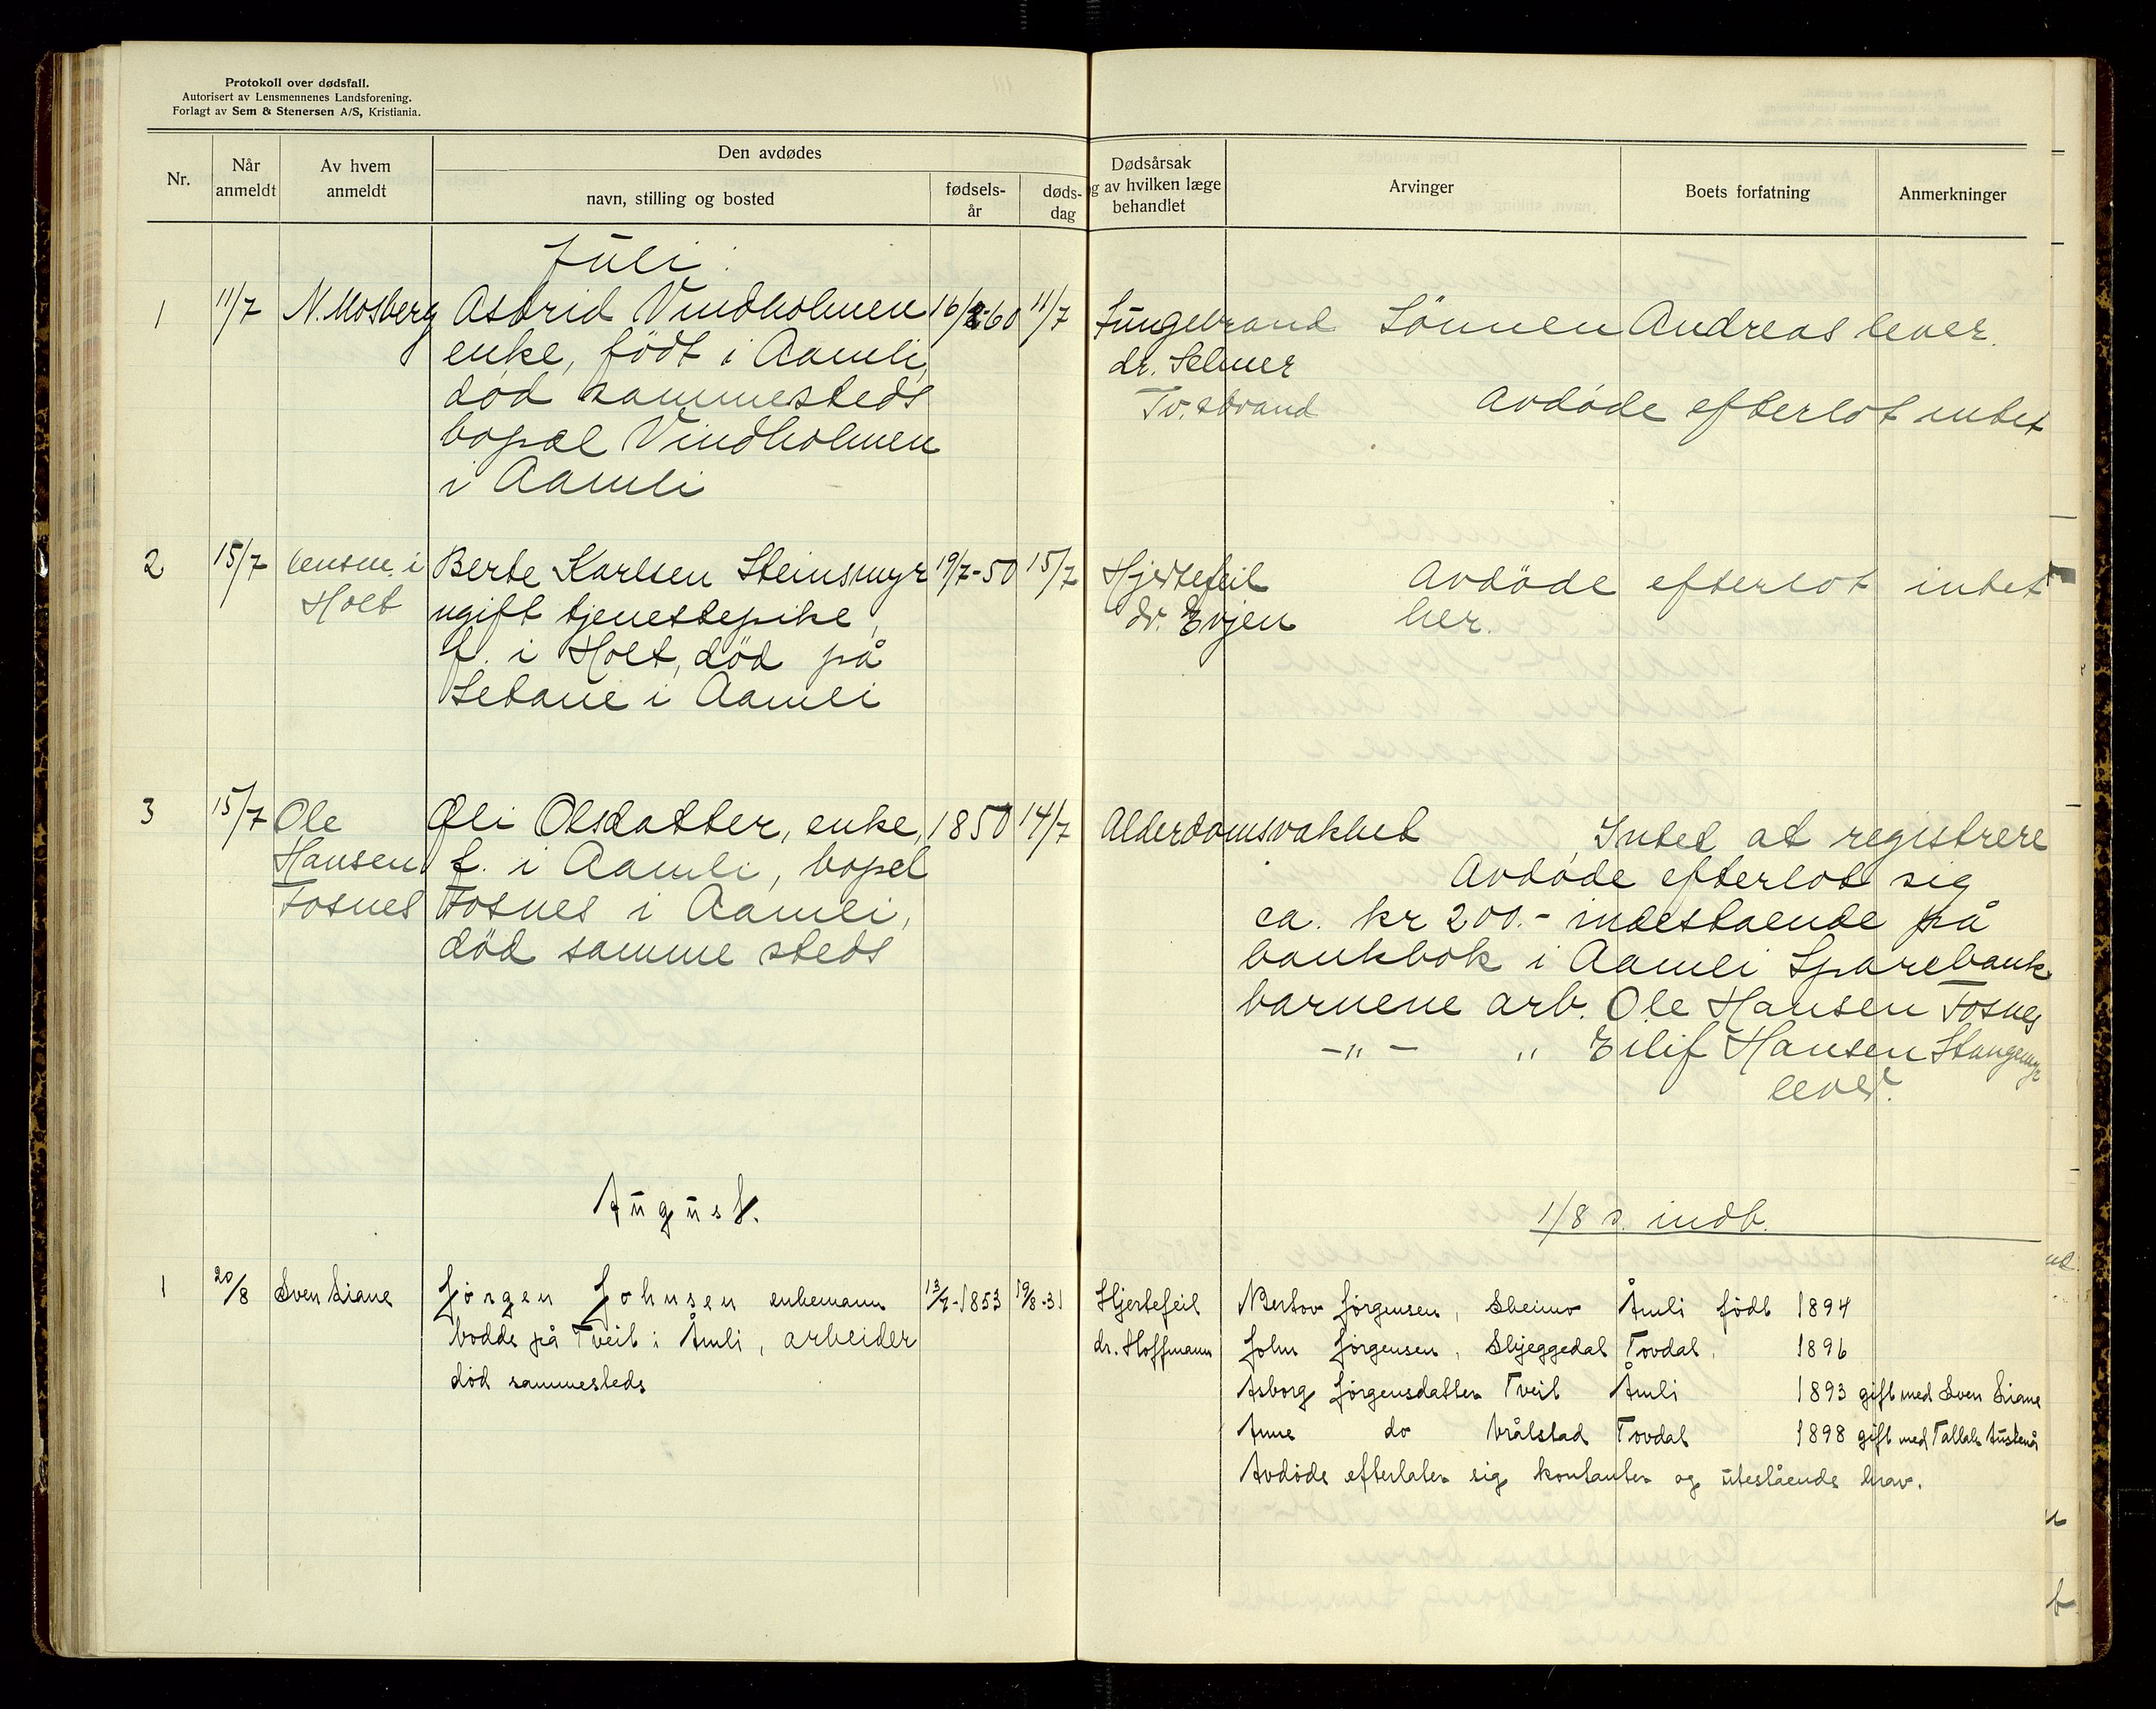 Protokoll over dødsfall.
Autorisert av Lensmennenes Landsforening.
Forlagt av Sem & Stenersen A/S, Kristiania.
Nr.
Når anmeldt
Av hvem anmeldt
Den avdødes
navn, stilling og bosted
fødsels-
år
døds-
dag
Dødsårsak
g av hvilken læge
behandlet
Arvinger
Boets forfatning
Anmerkninger
Juli.
1 11/7 N. Mosberg Astrid Vindholmen 11/7
enke, født i Aamli,
død sammesteds
bopæl Vindholmen
i Aamli
Lungebrand Sönnen Andreas lever.
dr. Selmer
Tv.strand Avdöde efterlot intet
2 15/7 lensm. i Berte Karlsen Steinsmyr 19/7-50 15/7
Holt ugift tjenestepike,
f. i Holt, död på
Setane i Aamli
Hjertefeil Avdöde efterlot intet
dr. Evjen her.
3 15/7 Ole Oli Olsdatter, enke, 1850 14/7
Hansen f. i Aamli, bopel
Fosnes Fosnes i Aamli,
död samme steds
Alderdomsvakhet Intet at registrere
Avdöde efterlot sig
ca. kr 200.- indestaende på
bankbok i Aamli Sparebank
barnene arb. Ole Hansen Fosnes
-"- " Eilif Hansen Stangemyr
lever.
August.
1/8 s. indb.
1 20/8 Sven Liane Jørgen Johnsen enkemann 13/7-1853 19/8-31
bodde på Tveit i Åmli, arbeider
död sammesteds
Hjertefeil Jørgensen, Åmli født 1894
dr. Hoffmann John Jørgensen, Skjeggedal Tovdal, 1896
Asborg Jørgensdatter Tveit Åmli 1893 gift med Sven Liane
Anne do Vrålstad Tovdal 1898 gift med Tallak Austenå
Avdöde efterlater sig kontanter og utestående krav.